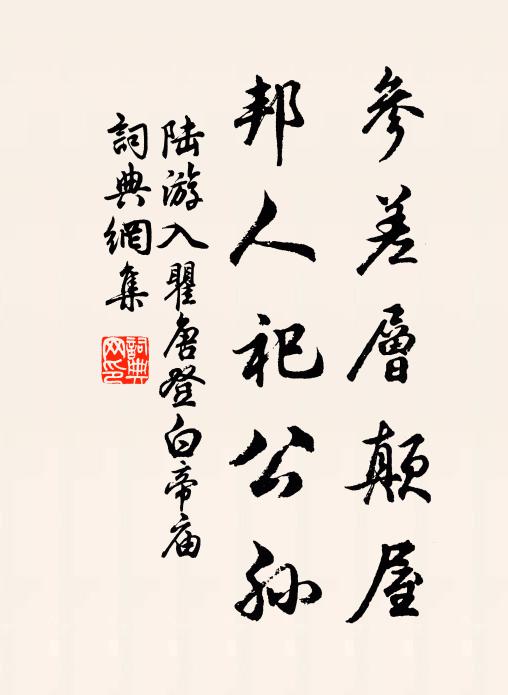 參差層顛屋
邦人祀公孫
陆游入瞿唐登白帝庙
詞典網集
詞典
网印